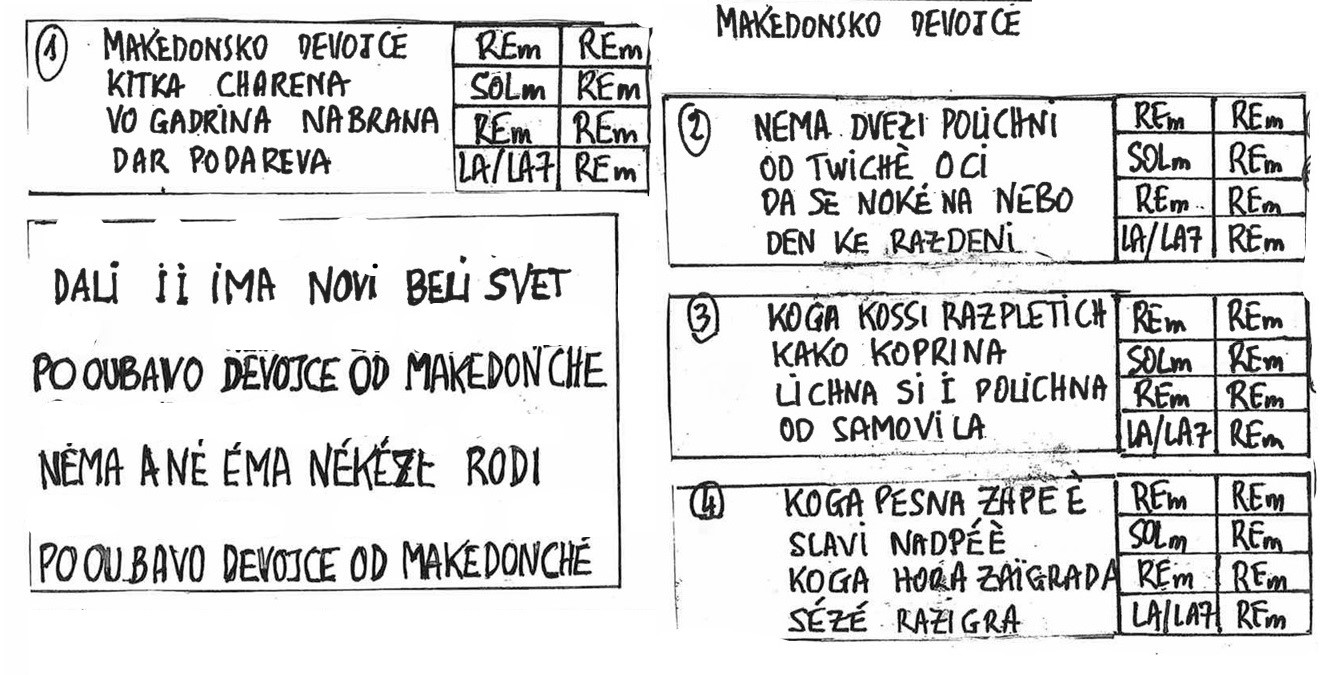 MAKEDONSKO DEVOJCE
① MAKEDONSKO DEVOJCE REm REm
KITKA CHARENA SOLm REm
VO GADRINA NABRANA REm REm
DAR PODAREVA LA/LA7 REm
DALI II IMA NOVI BELI SVET
PO OUBAVO DEVOJCE OD MAKEDONCHE
NÉMA A NÉ ÉMA NÉKÉZE RODI
PO OUBAVO DEVOJCE OD MAKEDONCHÉ
② NEMA DVEZI POLICHNI REm REm
OD TWICHÈ OCI SOLm REm
DA SE NOKÉ NA NEBO REm REm
DEN KE RAZDENI LA/LA7 REm
③ KOGA KOSSI RAZPLETICH REm REm
KAKO KOPRINA SOLm REm
LICHNA SI I POLICHNA REm REm
OD SAMOVILA LA/LA7 REm
④ KOGA PESNA ZAPEÈ REm REm
SLAVI NADPÉÈ SOLm REm
KOGA HORA ZAÏGRADA REm REm
SÉZÉ RAZIGRA LA/LA7 REm